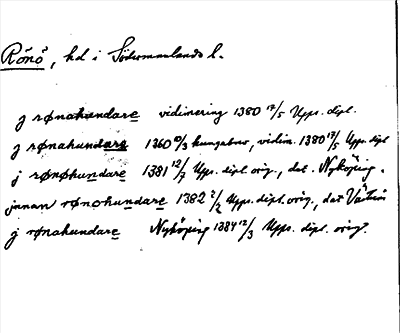 Rönö, hd i Södermanlands l.
j rønahundare vidimering 1380 17/5 Upps. dipl.
j rønahundare 1360 10/3 kungabrev, vidim. 1380 17/5 Upps. dipl
j rønøhundare 1381 12/7 Upps. dipl. orig., dat. Nyköping.
jnnan rønohundare 1382 2/2 Upps. dipl. orig., dat
j rønahundare Nyköping 1384 12/3 Upps. dipl. orig.